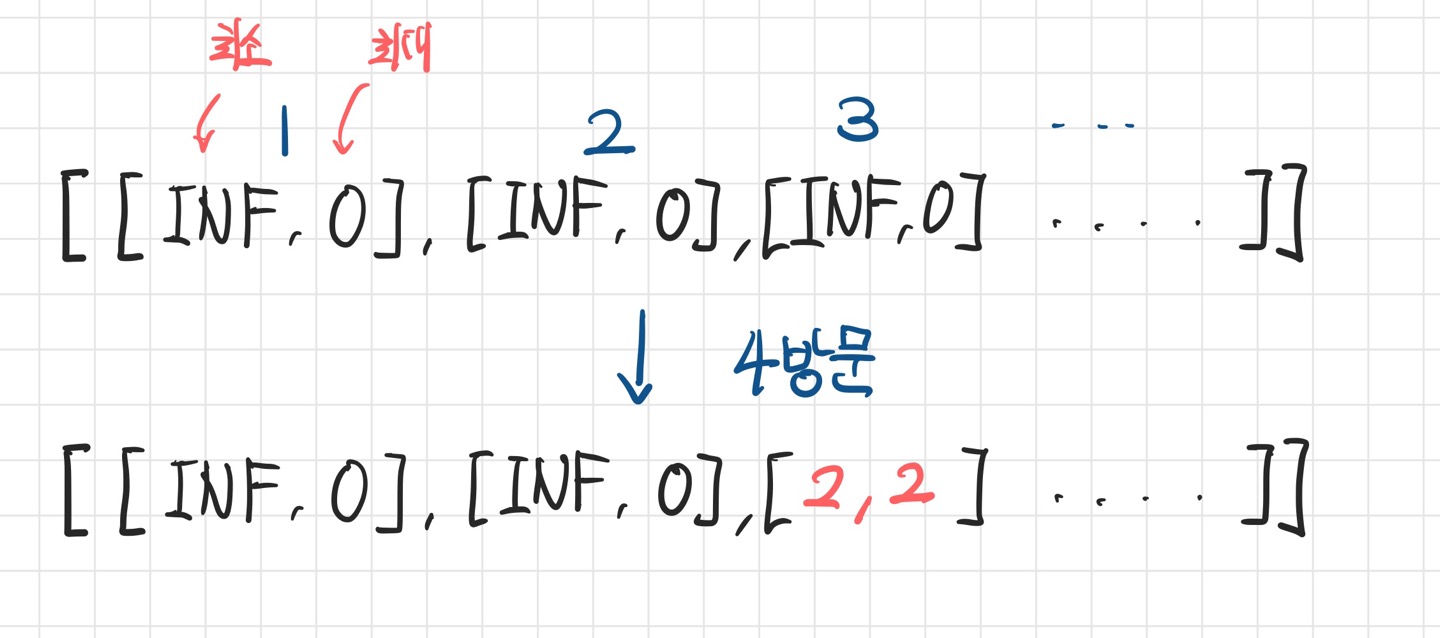 최소 최대
1 2 3 ---
[[INF, 0], [INF, 0], [INF, 0] .... ]]
↓ 4방문
[[INF, 0], [INF, 0], [2, 2] .... ]]